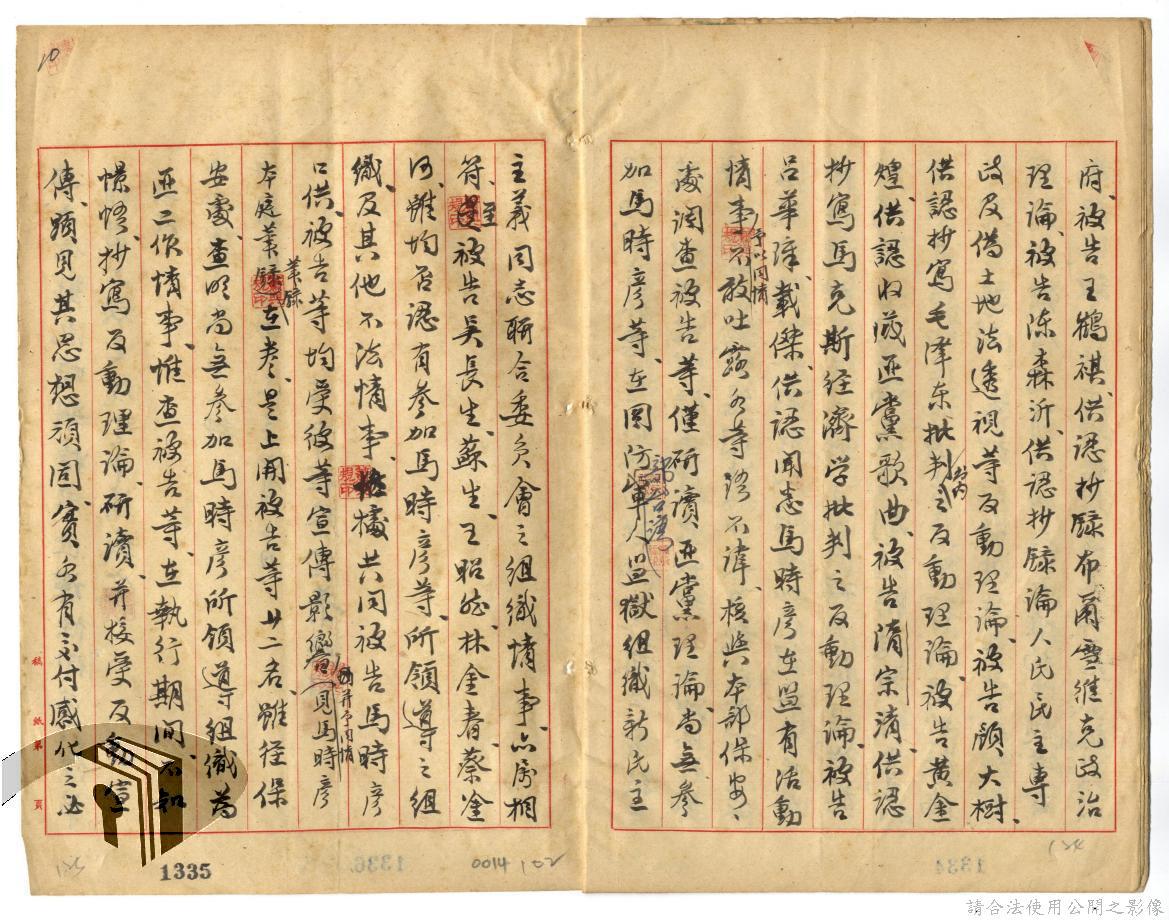 府、被告王鶴祺、供認抄錄布爾雪維克政治
理論、被告陳森沂、供認抄錄論人民民主專
政及偽土地法透視等反動理論、被告顏大樹、
供認抄寫毛澤東批判之反動理論、被告黃金
煌、供認收藏匪黨歌曲、被告隋宗清、供認
抄寫馬克斯經濟学批判之反動理論、被告
呂華璋、載傑、供認聞悉馬時彥在監有活動
情事、予以同情不敢吐露各等語不諱、核與本部保安
處調查被告等、僅研讀匪黨理論、尚無參
加馬時彥等、在國防部台灣軍人監獄組織新民主
主義同志聯合委員會之組織情事、亦屬相
符、至被告吳長生、蘇生、王昭然、林金春、蔡金
河、雖均否認有參加馬時彥等、所領導之組
織、及其他不法情事、惟據共同被告馬時彥
口供、被告等均受彼等宣傳影響、并予同情、見馬時彥
本庭筆錄在卷、是上開被告等廿二名、雖經保
安處、查明尚無參加馬時彥所領導組織為
匪工作情事、惟查被告等、在執行期間、不知
懍悟、抄寫反動理論、研讀、并接受反動宣
傳、顯見其思想頑固、實各有交付感化之必
稿紙第 頁
10
1335
0014
102
請合法使用公開之影像